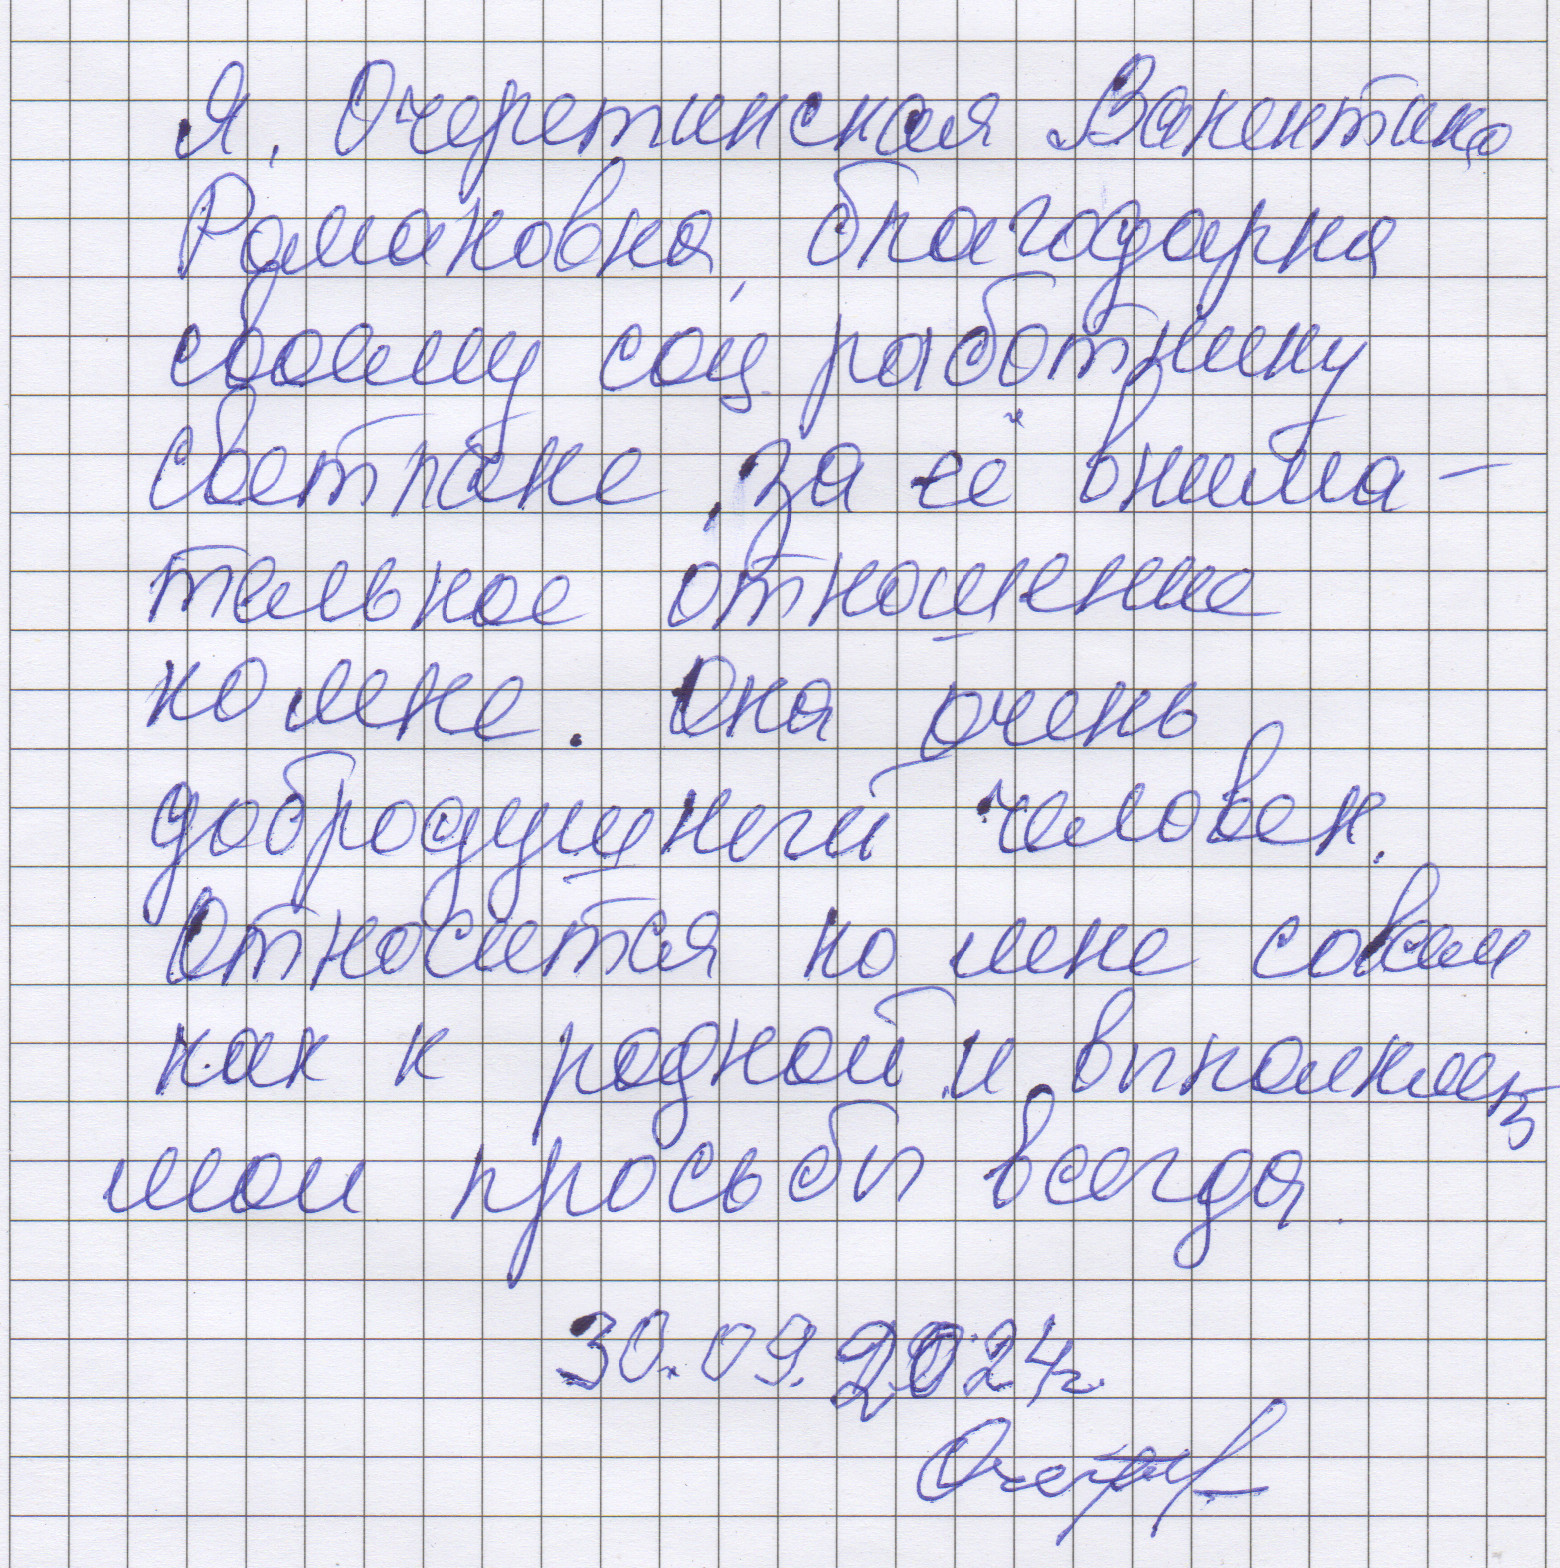 Я, Очеретинская Валентина
Романовна, благодарна
своему соц. работнику
Светлане, за её внима-
тельное отношение
ко мне. Она очень
добродушный человек.
Относится ко мне совсем
как к родной и выполняет
мои просьбы всегда.
30.09.2024г.